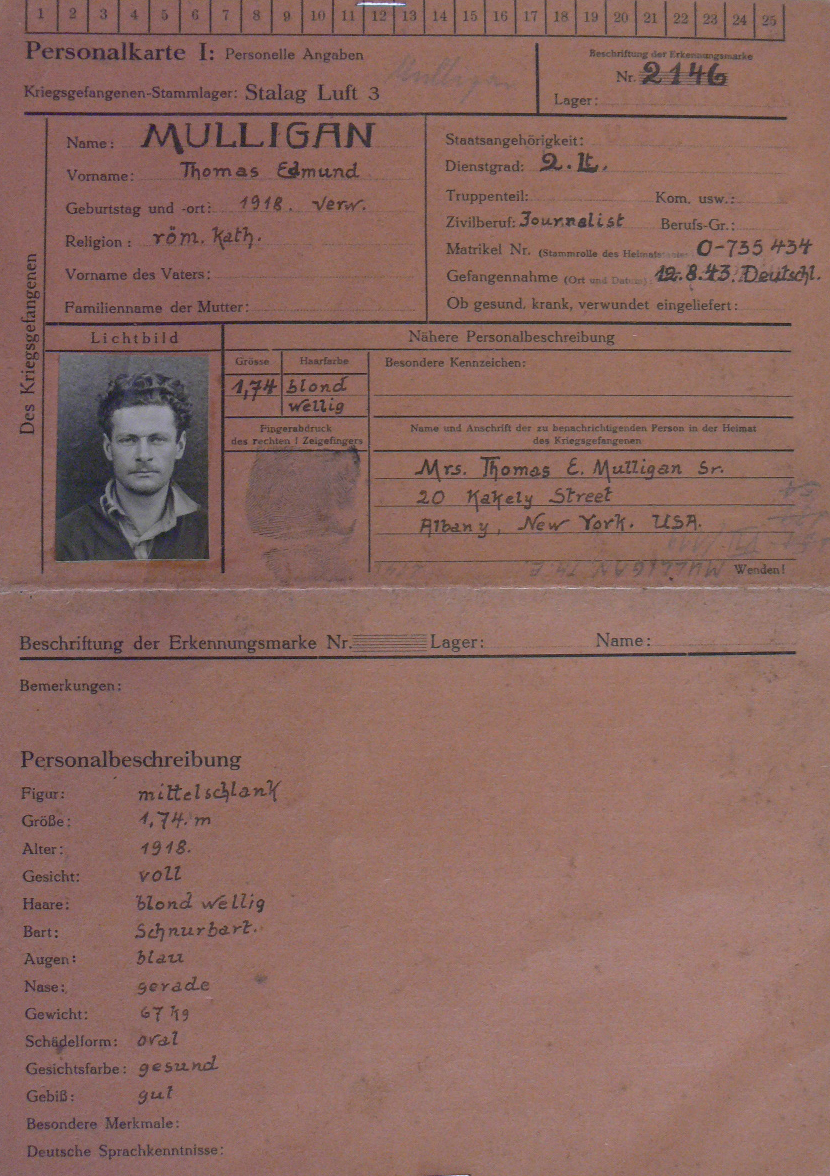 1 2 3 4 5 6 7 8 9 10 11 12 13 14 15 16 17 18 19 20 21 22 23 24 25
Personalkarte I: Personelle Angaben
Mulligan
Beschriftung der Erkennungsmarke
Nr. 2146
Kriegsgefangenen-Stammlager: Stalag Luft 3
Lager:
Des Kriegsgefangenen
Name: MULLIGAN
Vorname: Thomas Edmund
Geburtstag und -ort: 1918. verw.
Religion: röm. Kath.
Vorname des Vaters:
Familienname der Mutter:
Staatsangehörigkeit:
Dienstgrad: 2. Lt.
Truppenteil: Kom. usw.:
Zivilberuf: Journalist Berufs-Gr.:
Matrikel Nr. (Stammrolle des Heimatstaates) O-735 434
Gefangennahme (Ort und Datum): 12.8.43. Deutschl.
Ob gesund, krank, verwundet eingeliefert:
Lichtbild
Nähere Personalbeschreibung
Grösse Haarfarbe
1,74 blond
wellig
Fingerabdruck
des rechten ! Zeigefingers
Besondere Kennzeichen:
Name und Anschrift der zu benachrichtigenden Person in der Heimat
des Kriegsgefangenen
Mrs. Thomas E. Mulligan Sr.
20 Kakely Street
Albany, New York. USA.
MULLIGAN Th. E.
Wenden!
Beschriftung der Erkennungsmarke Nr. Lager: Name:
Bemerkungen:
Personalbeschreibung
Figur: mittelschlank
Größe: 1,74. m
Alter: 1918.
Gesicht: voll
Haare: blond wellig
Bart: Schnurbart.
Augen: blau
Nase: gerade
Gewicht: 67 kg
Schädelform: oval
Gesichtsfarbe: gesund
Gebiß: gut
Besondere Merkmale:
Deutsche Sprachkenntnisse: